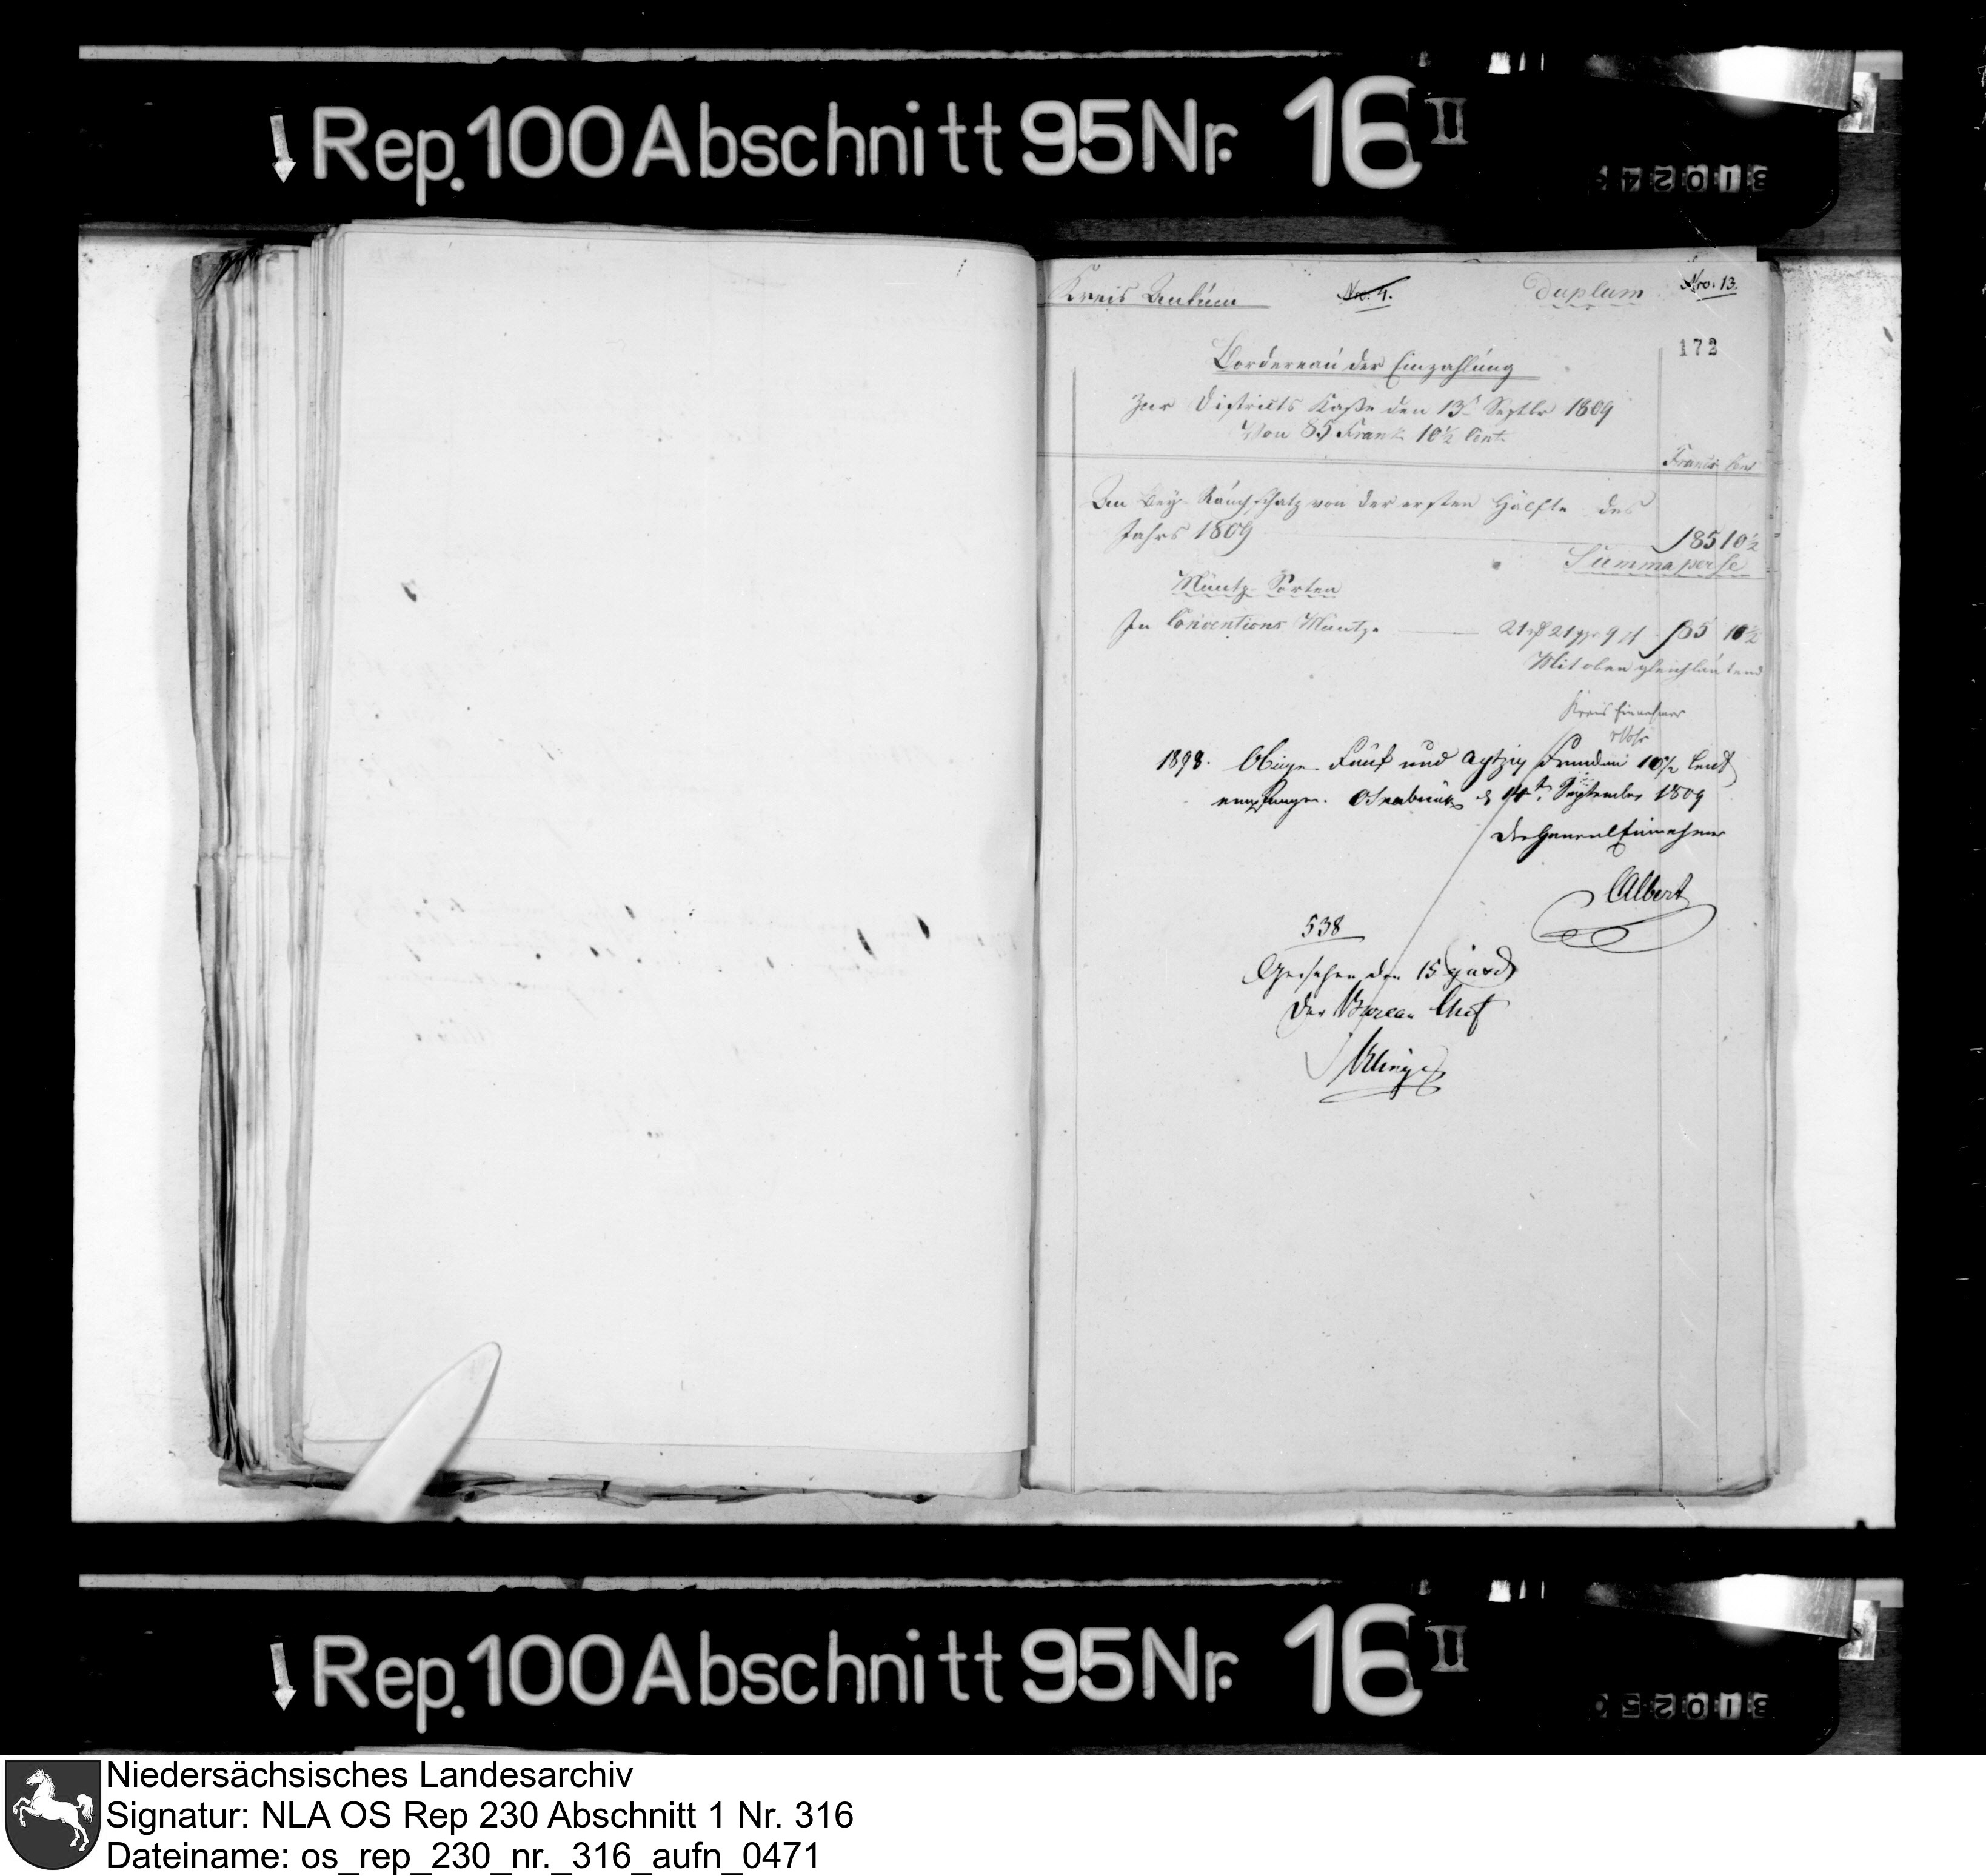 Rep. 100 Abschnitt 95 Nr. 16 II
Kreis Ankum
Nro. 4.
Duplum
Nro. 13.
172
Bordereau der Einzahlung
zur Districts Kaße den 13t Septbr 1809
Von 85 Frank 10½ Cent.
Franks Cent
An Bey Rauchschatz von der ersten Hälfte des
Jahrs 1809
85 10½
Summa per se
Müntz-Sorten
In Conventions Müntze 21 rh 21 ggr 9 pf 85 10½
Mit oben gleichlautend
Kreis Einnehmer
1898. Obige Fünf und Achtzig Franken 10½ Cent
empfangen. Osnabrück d 14ten September 1809
Der General Einnehmer
Albert
538
Gesehen den 15
Der Bureau Chef
Rep. 100 Abschnitt 95 Nr. 16 II
Niedersächsisches Landesarchiv
Signatur: NLA OS Rep 230 Abschnitt 1 Nr. 316
Dateiname: os_rep_230_nr._316_aufn_0471